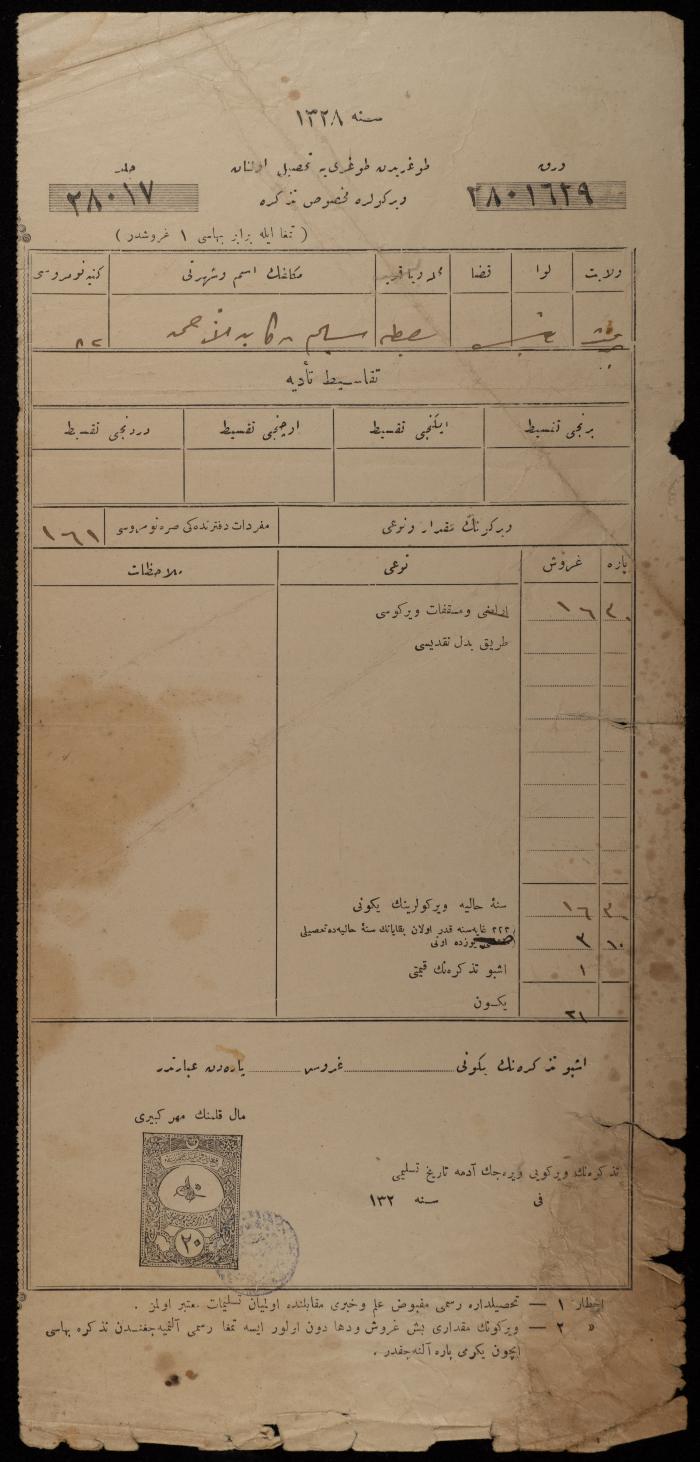 سنه ١٣٢٨
ورق
طوغریدن طوغری‌یه تحصیل اولنان
جلد
٢٨٠١٦٢٩
ویرکولره مخصوص تذکره
٢٨٠١٧
( تمغا ایله برابر بهاسی ١ غروشدر )
ولایت لوا قضا محله ویا قریه مکلفك اسم وشهرتی کنیه نومروسی
٨٢
تقاسیط تأدیه
برنجی تقسیط ایکنجی تقسیط اوچنجی تقسیط دردنجی تقسیط
ویرکونك مقدار ونوعی مفردات دفترنده‌کی صره نومروسی ١٦١
پاره غروش نوعی ملاحظات
٣٠ ١٦ اراضی ومسقفات ویرکوسی
طریق بدل نقدیسی
٣٠ ١٦ سنهٔ حالیه ویرکولرینك یکونی
١٠ ٣ غایه‌سنه قدر اولان بقایانك سنهٔ حالیه‌ده تحصیلی
یوزده اونی
١ اشبو تذکره‌نك قیمتی
٢١ یکون
اشبو تذکره‌نك یکونی غروش پاره‌دن عبارتدر
مال قلمنك مهر کبیری
تذکره‌نك ویرکویی ویره‌جك آدمه تاریخ تسلیمی
فی سنه ١٣٢
٢٠
اخطار ١ — تحصیلداره رسمی مقبوض علم وخبری مقابلنده اولمیان تسلیمات معتبر اولمز .
» ٢ — ویرکونك مقداری بش غروش ودها دون اولور ایسه تمغا رسمی آلنمیه‌جغندن تذکره بهاسی
ایچون یکرمی پاره آلنه‌جقدر .